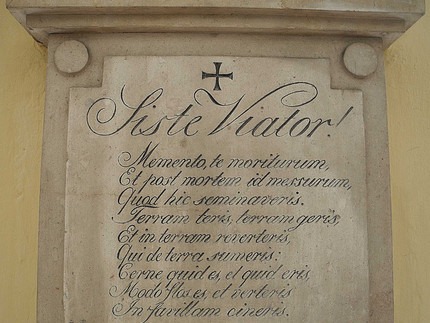 Siste Viator!
Memento, te moriturum,
Et post mortem id messurum,
Quod hic seminaveris.
Terram teris, terram geris,
Et in terram reverteris,
Qui de terra sumeris:
Cerne quid es, et quid eris,
Modo flos es, et verteris
In favillam cineris.